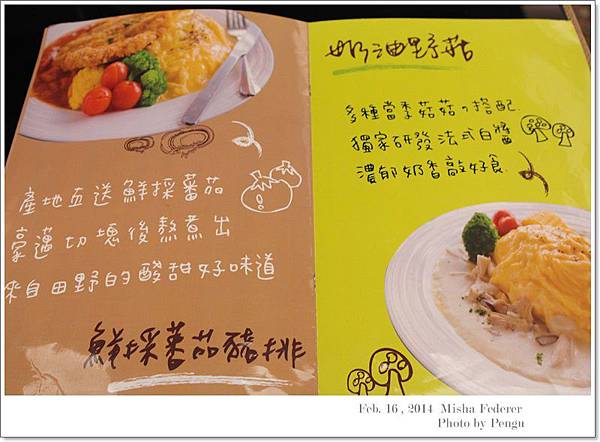 產地直送鮮採蕃茄
豪邁切塊後熬煮出
來自田野的酸甜好味道
鮮採蕃茄豬排
奶油野菇
多種當季菇菇の搭配
獨家研發法式白醬
濃郁奶香敲好食
Feb. 16 , 2014 Misha Federer
Photo by Pengu